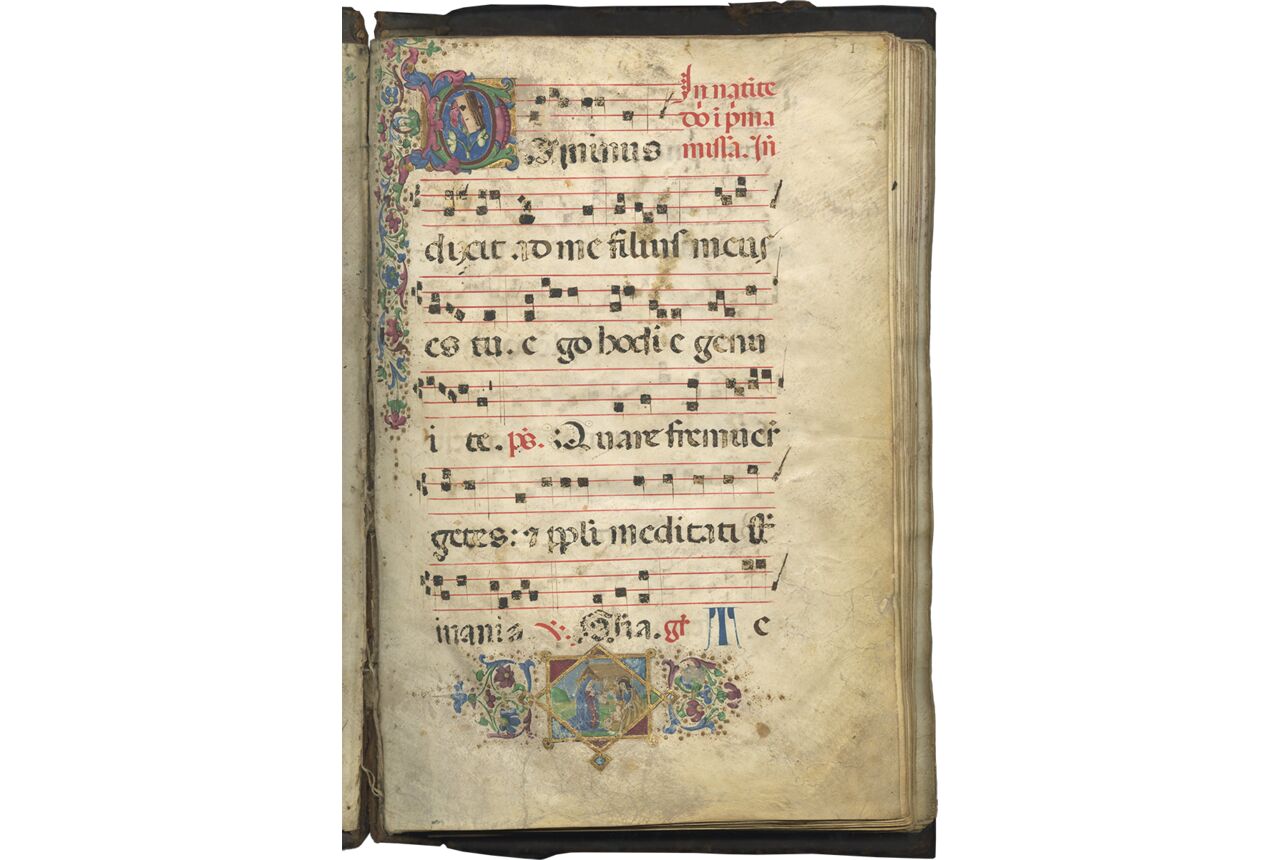 1
In natīte
dō i pīma
missa. Iñ
Dominus
dixit ad me filius meus
es tu. ego hodie genu
i te. pš. Quare fremuer̄
gētes: ⁊ ppli meditati sr̄
inania. ℣. Gl̄ia. gr̄ Te